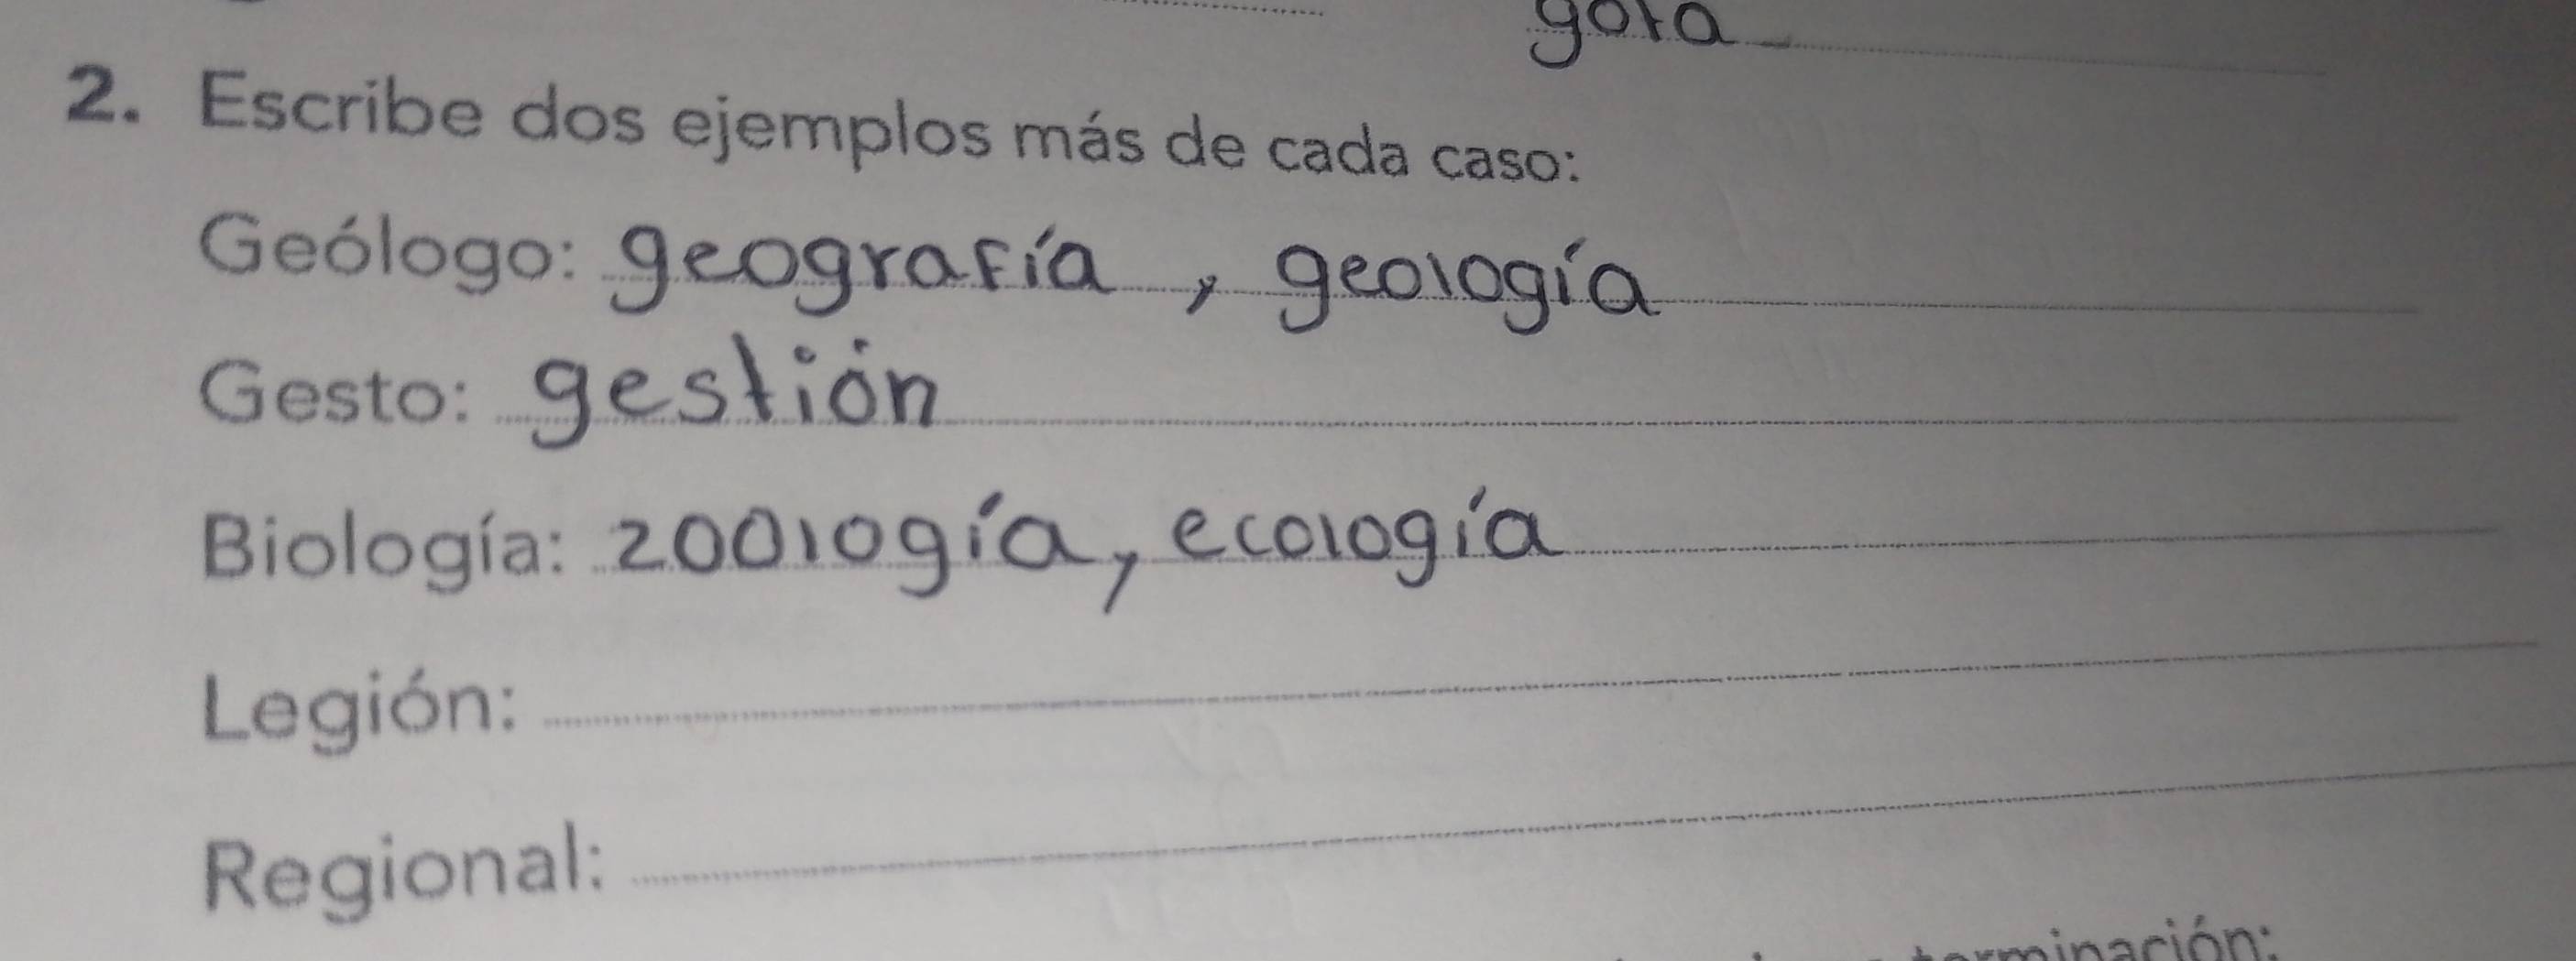 gota
2. Escribe dos ejemplos más de cada caso:
Geólogo: geografía, geología
Gesto: gestión
Biología: zoología, ecología
Legión:
Regional:
terminación: